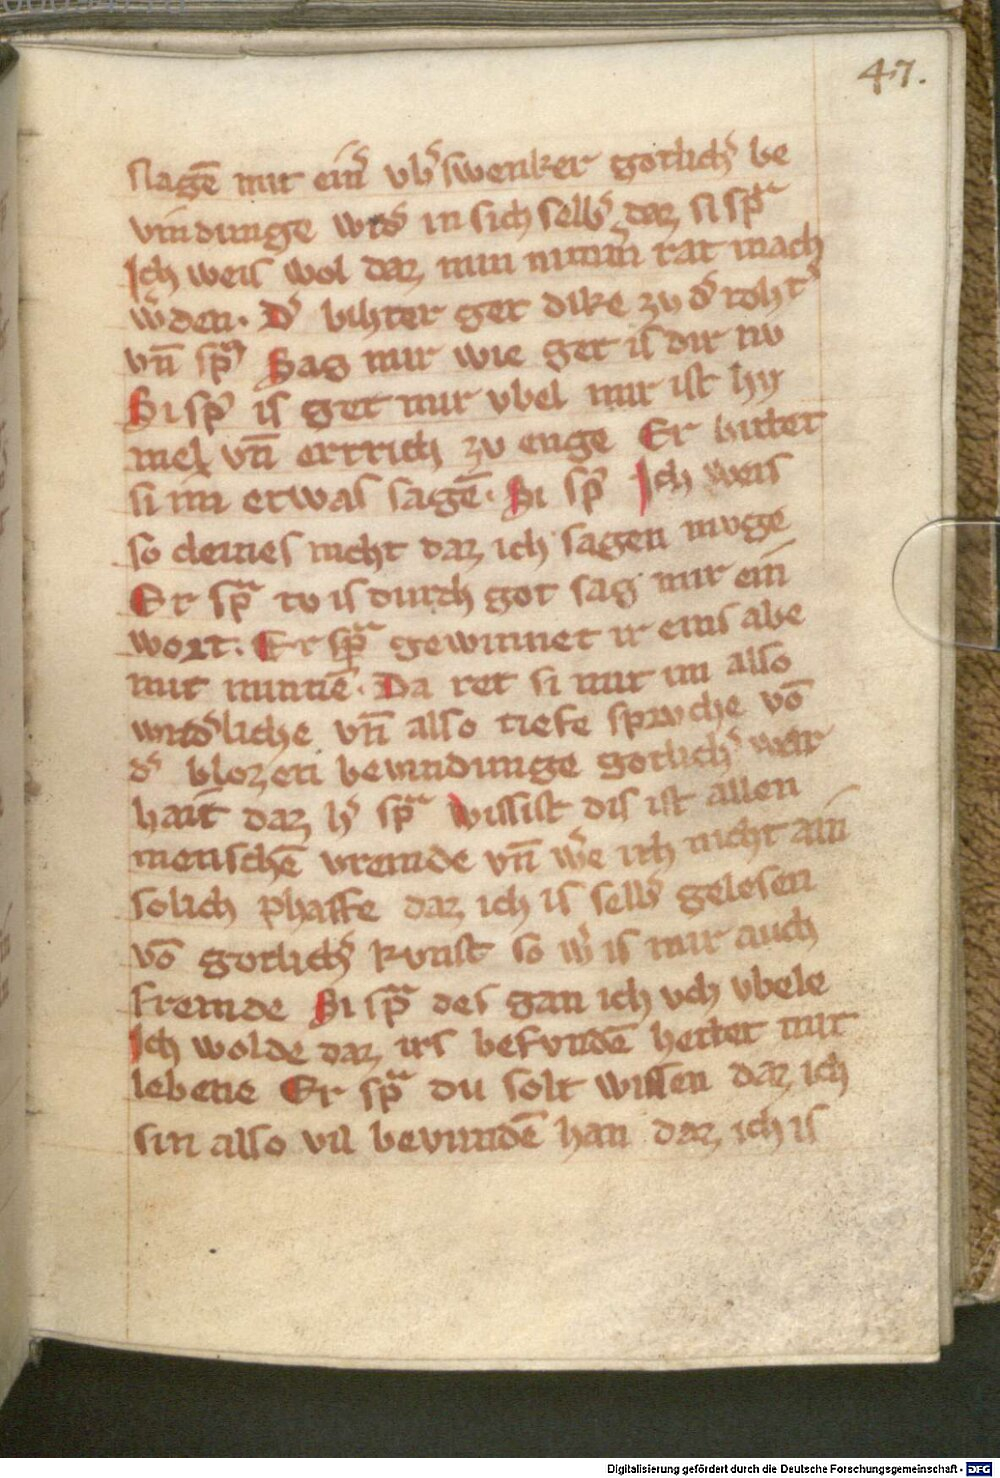 47.
slagē mit ein̄ vb̓swenker gotlich̓ be
vindunge wid̓ in sich selb̓ daz si spͣ
Ich weis wol daz nun nimm̓ rat mach
w̓den. D̓ bihter get dike zv d̓ toht̓
vn̄ sp̓ͣ Sag mir wie get is dir nv
Si sp̓ is get mir vbel mir ist hy
mel vn̄ ertrich zv enge Er bittet
si im etwas sagē. Si sp̓ Ich weis
so cleines nicht daz ich sagen mvge
Er spͣ tv is durch got sag mir ein
wort. Er spͣ gewinnet ir eins abe
mit minnē. Da ret si mit im also
wnd̓liche vn̄ also tiefe sprvche vō
d̓ blozen bevindunge gotlich̓ war
hait daz h̓ spͣ wissist dis ist allen
menschē vremde vn̄ w̓e ich nicht ain
solich phaffe daz ich is selb̓ gelesen
vō gotlich̓ kvnst so w̓ is mir auch
fremde Si spͣ des gan ich vch vbele
Ich wolde daz irs befvndē hettet mit
lebene Er spͣ du solt wissen daz ich
sin also vil bevundē han daz ich is
Digitalisierung gefördert durch die Deutsche Forschungsgemeinschaft - DFG